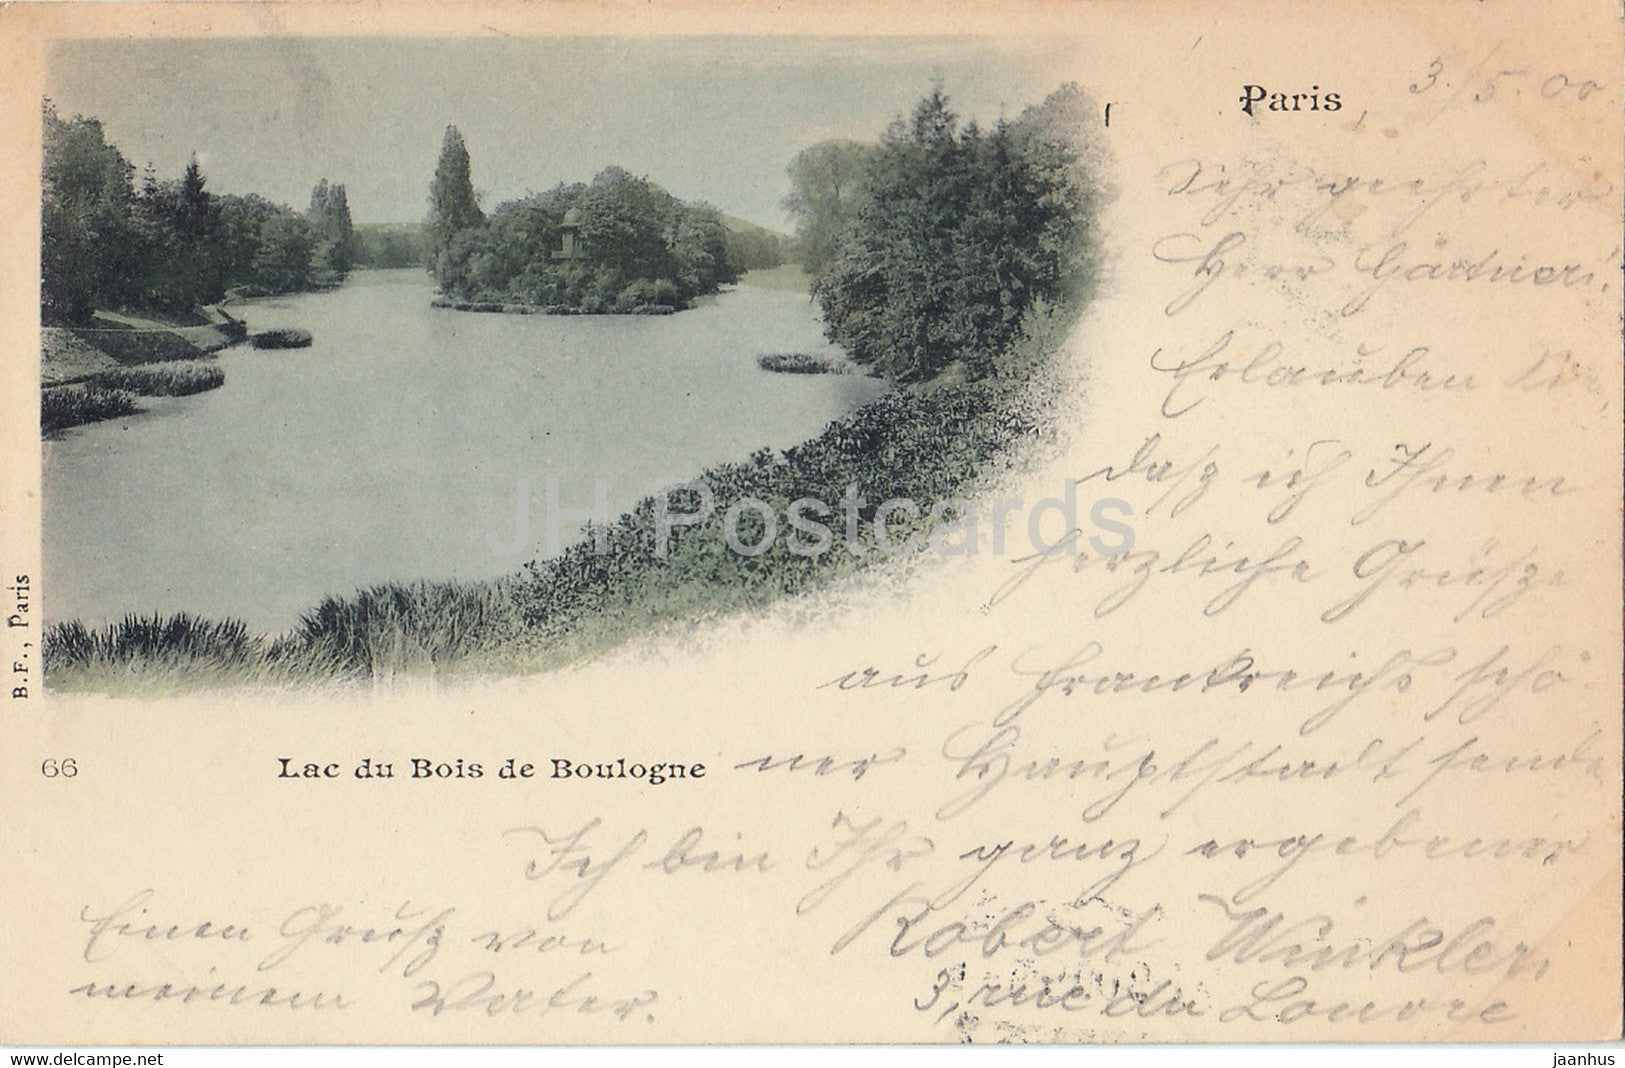 Paris, 3./5. 00
Sehr geehrter
Herr Gärtner!
Erlauben Sie,
daß ich Ihnen
herzliche Grüße
aus Frankreichs schö-
ner Hauptstadt sende
Ich bin Ihr ganz ergebener
Robert Winkler,
3, rue du Louvre
Einen Gruß von
meinem Vater.
B.F., Paris
66
Lac du Bois de Boulogne
JH Postcards
www.delcampe.net
jaanhus